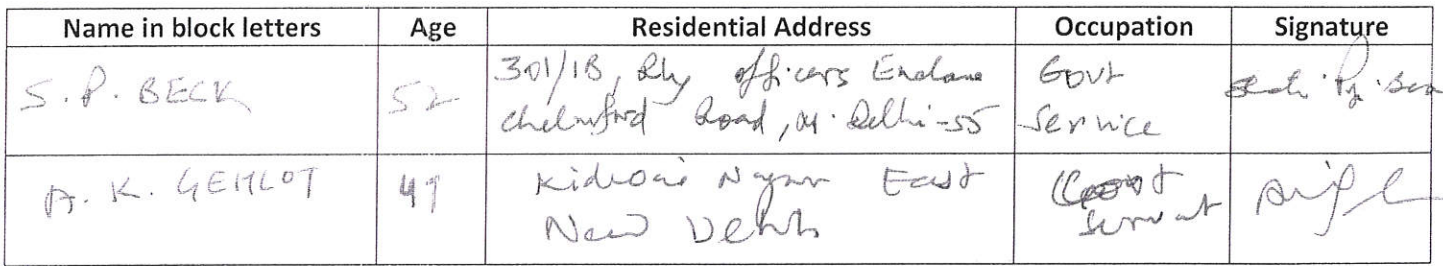 Name in block letters Age Residential Address Occupation Signature
S.P. BECK 52 301/1B, Rly officers Enclave Govt
Chelmsford Road, N. Delhi-55 Service
A. K. GEHLOT Kidwai Nagar East Govt
New Delhi Servant